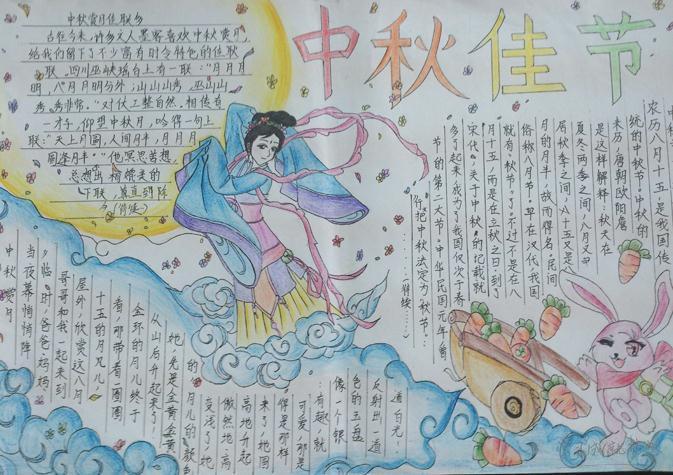 中秋佳节
中秋赏月佳联多
古往今来,许多文人墨客喜欢中秋赏月
给我们留下了不少富有时令特色的佳联
联。四川巫峡瑶台上有一联:“月月月
明,八月月明分外;山山山秀,巫山山
秀非常。”对仗工整自然。相传有
一才子,仰望中秋月,吟得一句上
联:“天上月圆,人间月半,月月月
圆逢月半。”他冥思苦想,
总想出
下联,直到除
农历八月十五是我国传
统的中秋节。中秋的
来历:唐朝欧阳詹
是这样解释:秋天在
夏冬两季之间,八月又
居秋季之间,八十五又是
月的月半,故而得名。民间
俗称八月节。早在汉代,我国
就有“秋节”了,不过不是在八
月十五,而是在立秋之日。到了
宋代,关于中秋的记载就
多了起来,成为了我国仅次于春
节的第二大节。中华民国元年
把中秋法定为“秋节”
中秋赏月
当夜幕悄悄降
临时,爸爸妈妈
哥哥和我一起来到
屋外,欣赏这八月
十五的月儿。月儿
看,那带着一圈圈
金环的月儿终于
从山后升起来了
她先是金黄金黄
的,月儿的颜色
变浅了,她
傲然地高
高地升起
来了。她圆
得是那样
可爱,那是
有趣,就
像一个银
色的玉盘
反射出一道
道白光。